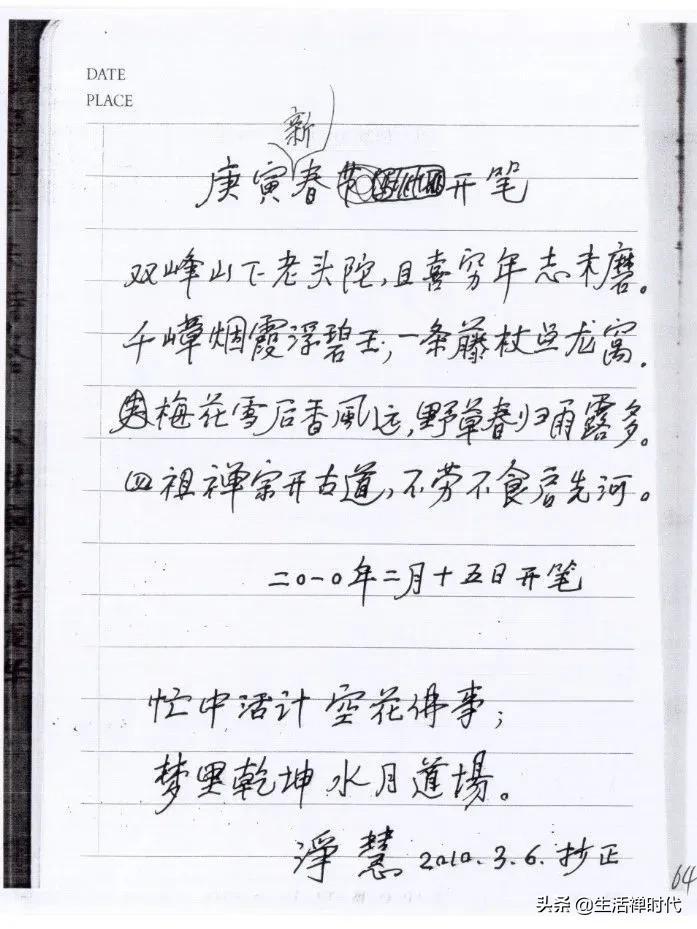 DATE
PLACE
新
庚寅春开笔
双峰山下老头陀，且喜穷年志未磨。
千嶂烟霞浮碧玉，一条藤杖点龙窝。
梅花雪后香風远，野草春归雨露多。
四祖禅宗开古道，不劳不食启先河。
二〇一〇年二月十五日开笔
忙中活计空花佛事；
梦里乾坤水月道場。
淨慧 2010.3.6.抄正
64
头条 @生活禅时代